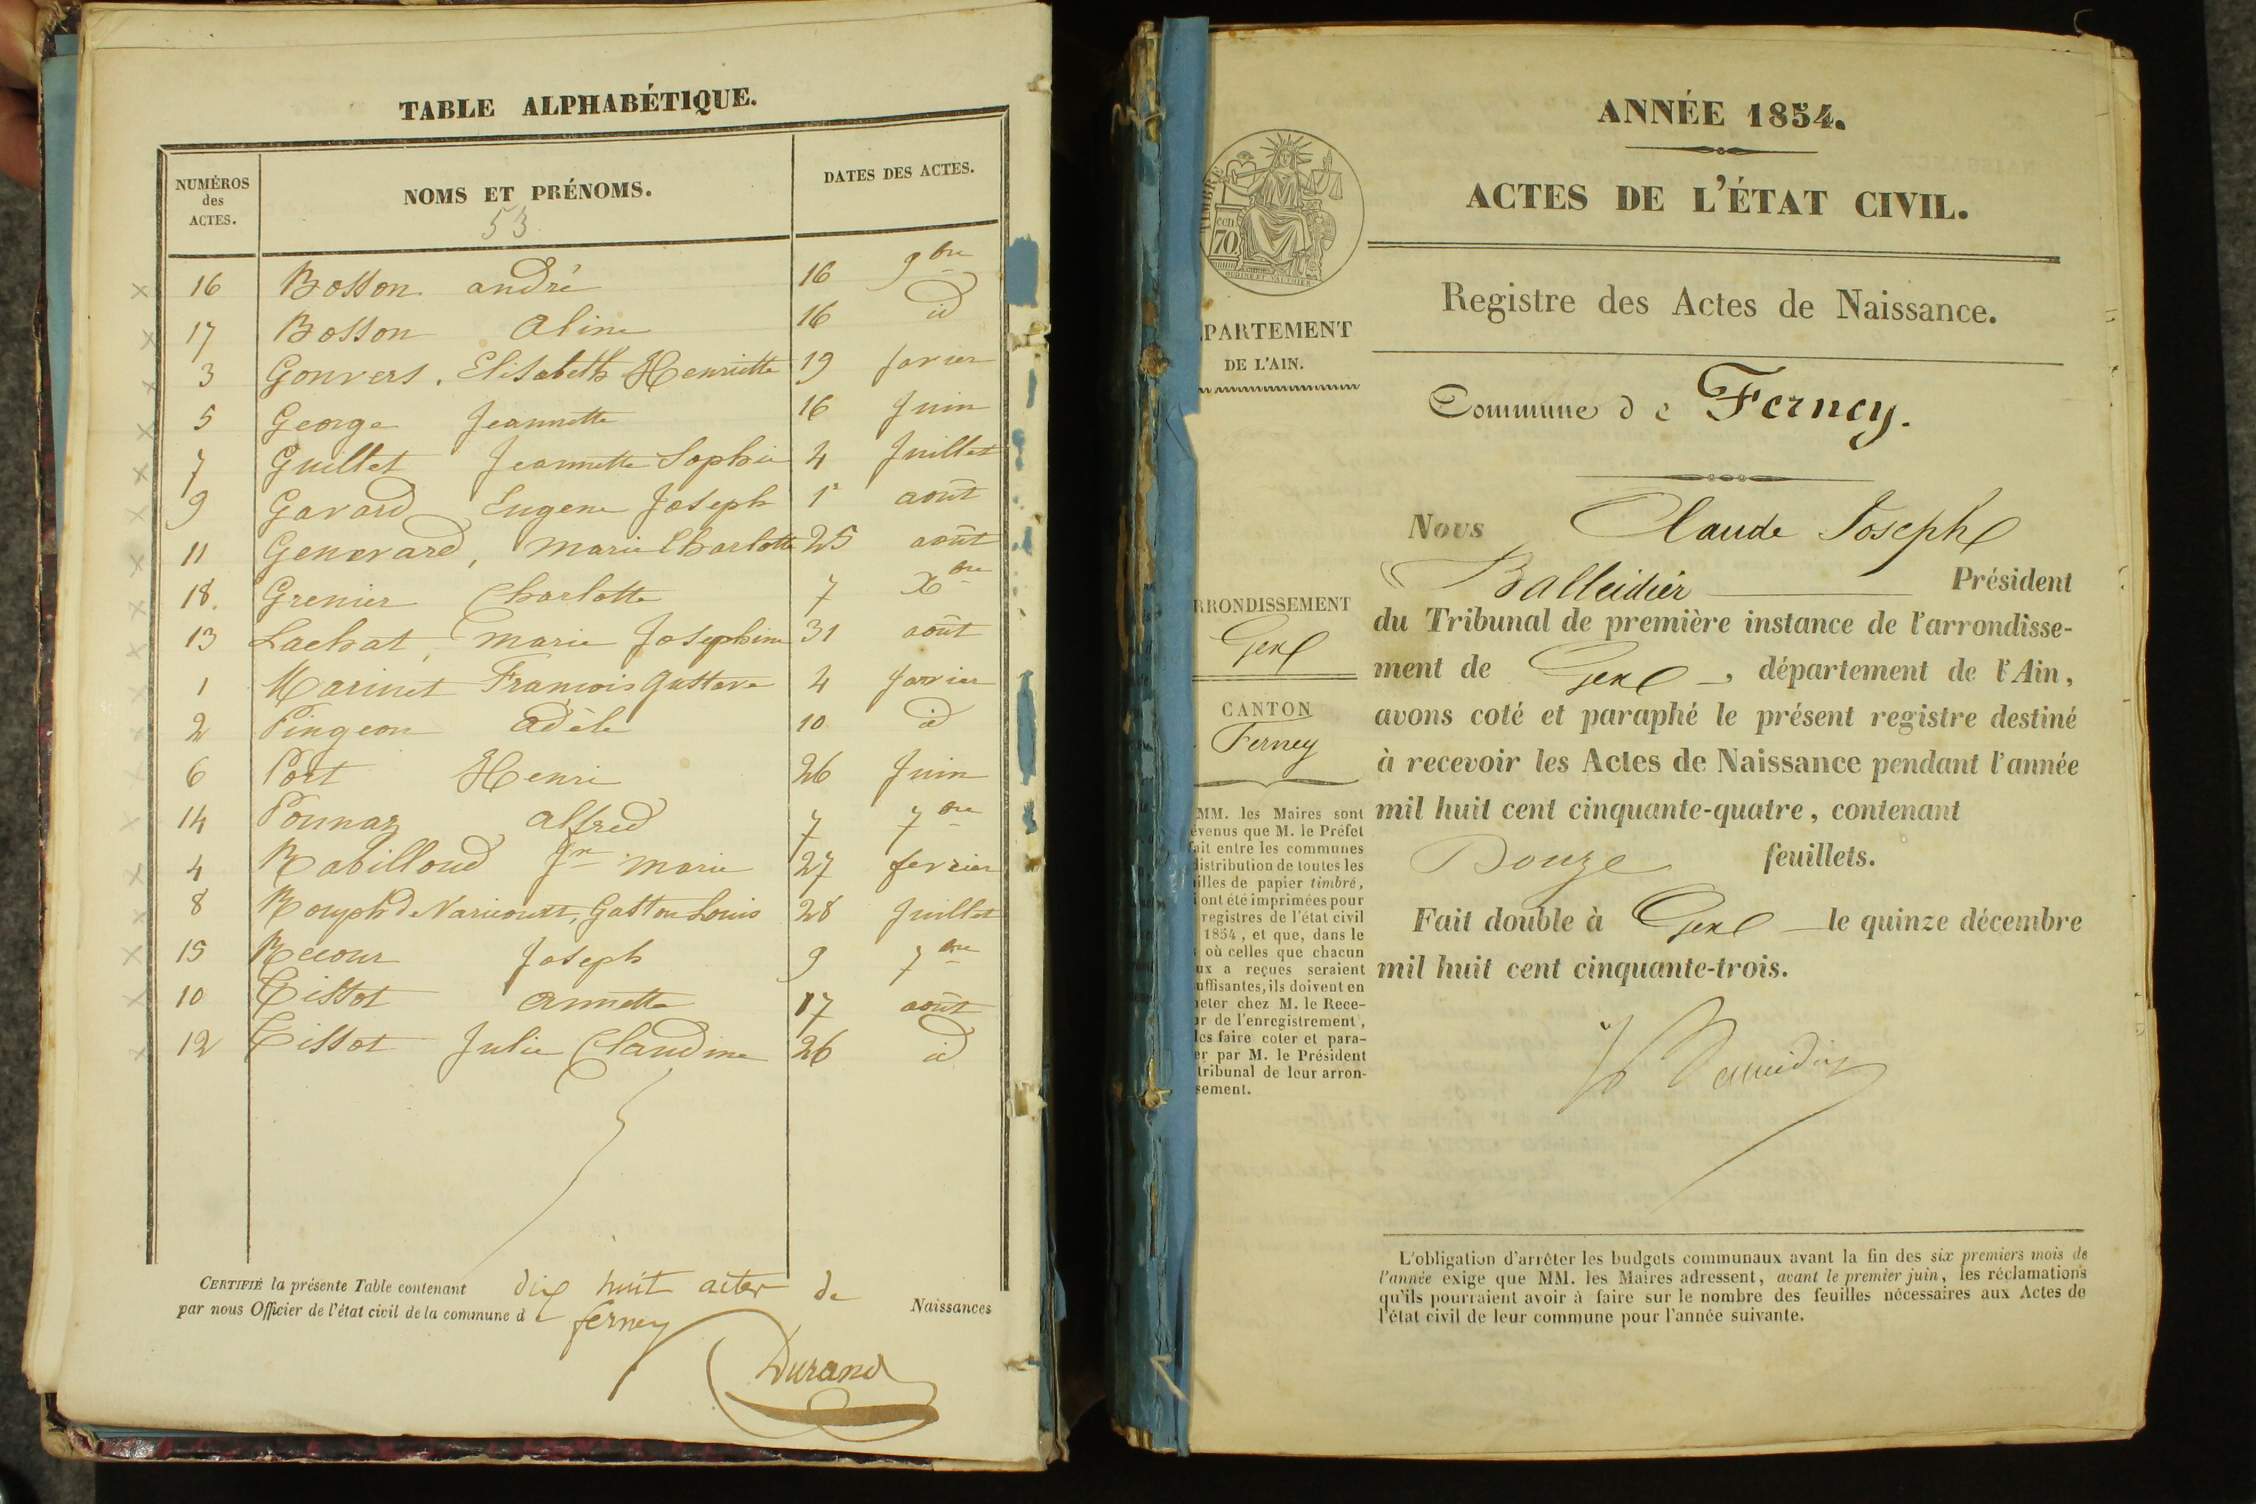 TABLE ALPHABÉTIQUE.
NUMÉROS des ACTES.
NOMS ET PRÉNOMS.
DATES DES ACTES.
53
16 Bosson andré 16 9bre
17 Bosson Aline 16 id
3 Gonvers, Elisabeth Henriette 19 janvier
5 George Jeannette 16 Juin
7 Guillet Jeannette Sophie 4 Juillet
9 Gavard Eugene Joseph 1r août
11 Genevard, Marie Charlotte 25 août
18. Grenier Charlotte 7 Xbre
13 Lachat, Marie Josephine 31 août
1 Marinet François Gustave 4 janvier
2 Pingeon Adèle 10 id
6 Port Henri 26 Juin
14 Pounaz alfred 7 7bre
4 Rabilloud Jne marie 27 fevrier
8 Rouph de Varicourt, Gaston Louis 28 Juillet
15 Recour Joseph 9 7bre
10 Tissot annette 17 août
12 Tissot Julie Claudine 26 id
CERTIFIÉ la présente Table contenant dix huit actes de Naissances
par nous Officier de l'état civil de la commune de ferney
Durand
ANNÉE 1854.
ACTES DE L'ÉTAT CIVIL.
TIMBRE
cen
70
Registre des Actes de Naissance.
PARTEMENT
DE L'AIN.
Commune de Ferney.
Nous Claude Joseph
Balleidier Président
du Tribunal de première instance de l'arrondisse-
ment de Gex, département de l'Ain,
avons coté et paraphé le présent registre destiné
à recevoir les Actes de Naissance pendant l'année
mil huit cent cinquante-quatre, contenant
Douze feuillets.
Fait double à Gex le quinze décembre
mil huit cent cinquante-trois.
RRONDISSEMENT
Gex
CANTON
Ferney
MM. les Maires sont
évenus que M. le Préfet
fait entre les communes
distribution de toutes les
illes de papier timbré,
i ont été imprimées pour
registres de l'état civil
1854, et que, dans le
où celles que chacun
ux a reçues seraient
uffisantes, ils doivent en
heter chez M. le Rece-
or de l'enregistrement,
les faire coter et para-
er par M. le Président
tribunal de leur arron-
sement.
L'obligation d'arrêter les budgets communaux avant la fin des six premiers mois de
l'année exige que MM. les Maires adressent, avant le premier juin, les réclamations
qu'ils pourraient avoir à faire sur le nombre des feuilles nécessaires aux Actes de
l'état civil de leur commune pour l'année suivante.